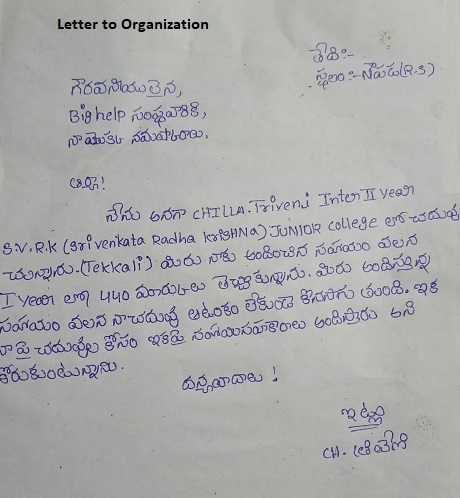 Letter to Organization
తేది:-
స్థలం:- నౌపడ(R.S)
గౌరవనీయులైన,
Bighelp సంస్థవారికి,
నా యొక్క నమస్కారాలు.
ఆర్యా!
నేను అనగా CHILLA. Triveni Inter II year
S.V.R.K (Srivenkata Radha KrisHNa) JUNIOR college లో చదువు
చున్నాను. (Tekkali) మీరు నాకు అందించిన సహాయం వలన
I Year లో 440 మార్కులు తెచ్చుకున్నాను. మీరు అందిస్తున్న
సహాయం వలన నా చదువు ఆటంకం లేకుండా కొనసాగు తుంది. ఇక
నా పై చదువుల కోసం ఇకపై సహాయసహకారాలు అందిస్తారు అని
కోరుకుంటున్నాను.
ధన్యవాదాలు !
ఇట్లు
CH. త్రివేణి